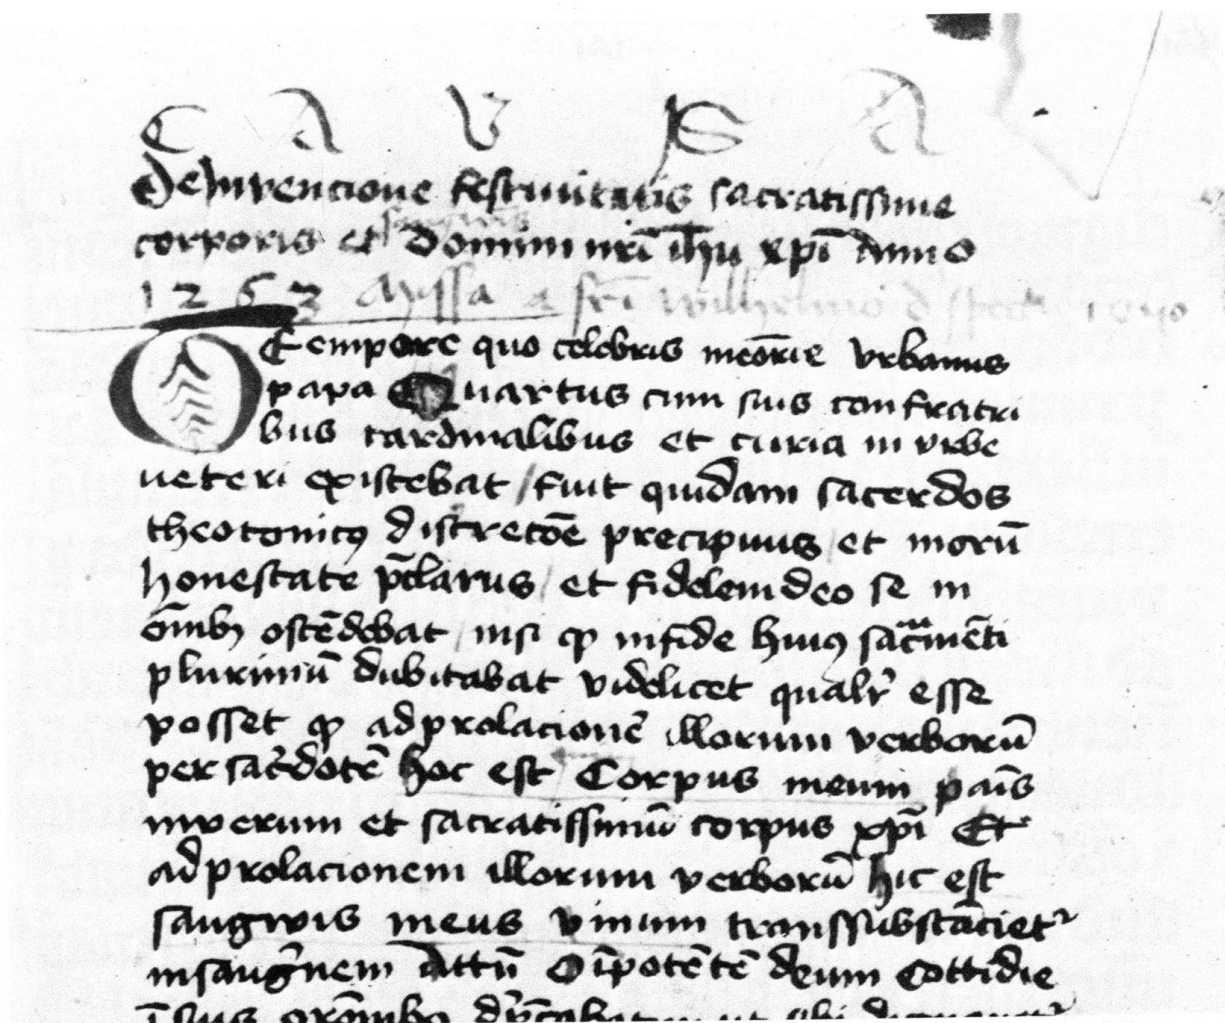 C A V S A
De Invencione festiuitatis sacratissime
sangwis
corporis et Domini nr̄i ih̄u xp̄i Anno
1 2 6 3 Missa a fr̄i wilhelmo d
Tempore quo celebris meōrie vrbanus
papa Quartus cum suis confratri
bus cardinalibus et curia in vrbe
veteri existebat / fuit quidam sacerdos
theotonicꝰ discretōe precipuus / et morū
honestate p̄clarus / et fidelem deo se in
om̄ibꝫ ostēdebat / nisi ꝙ in fide huiꝰ sacramēti
plurimū dubitabat videlicet qualr̄ esse
posset ꝙ ad prolacionē illorum verborū
per sac̄dotē hoc est Corpus meum pāis
in verum et sacratissimū corpus xp̄i Et
ad prolacionem illorum verborū hic est
sangwis meus vinum transsubstāciet᷑
in sangnem Attn̄ Oīpotētē deum cottidie
ī suis orōnibꝫ